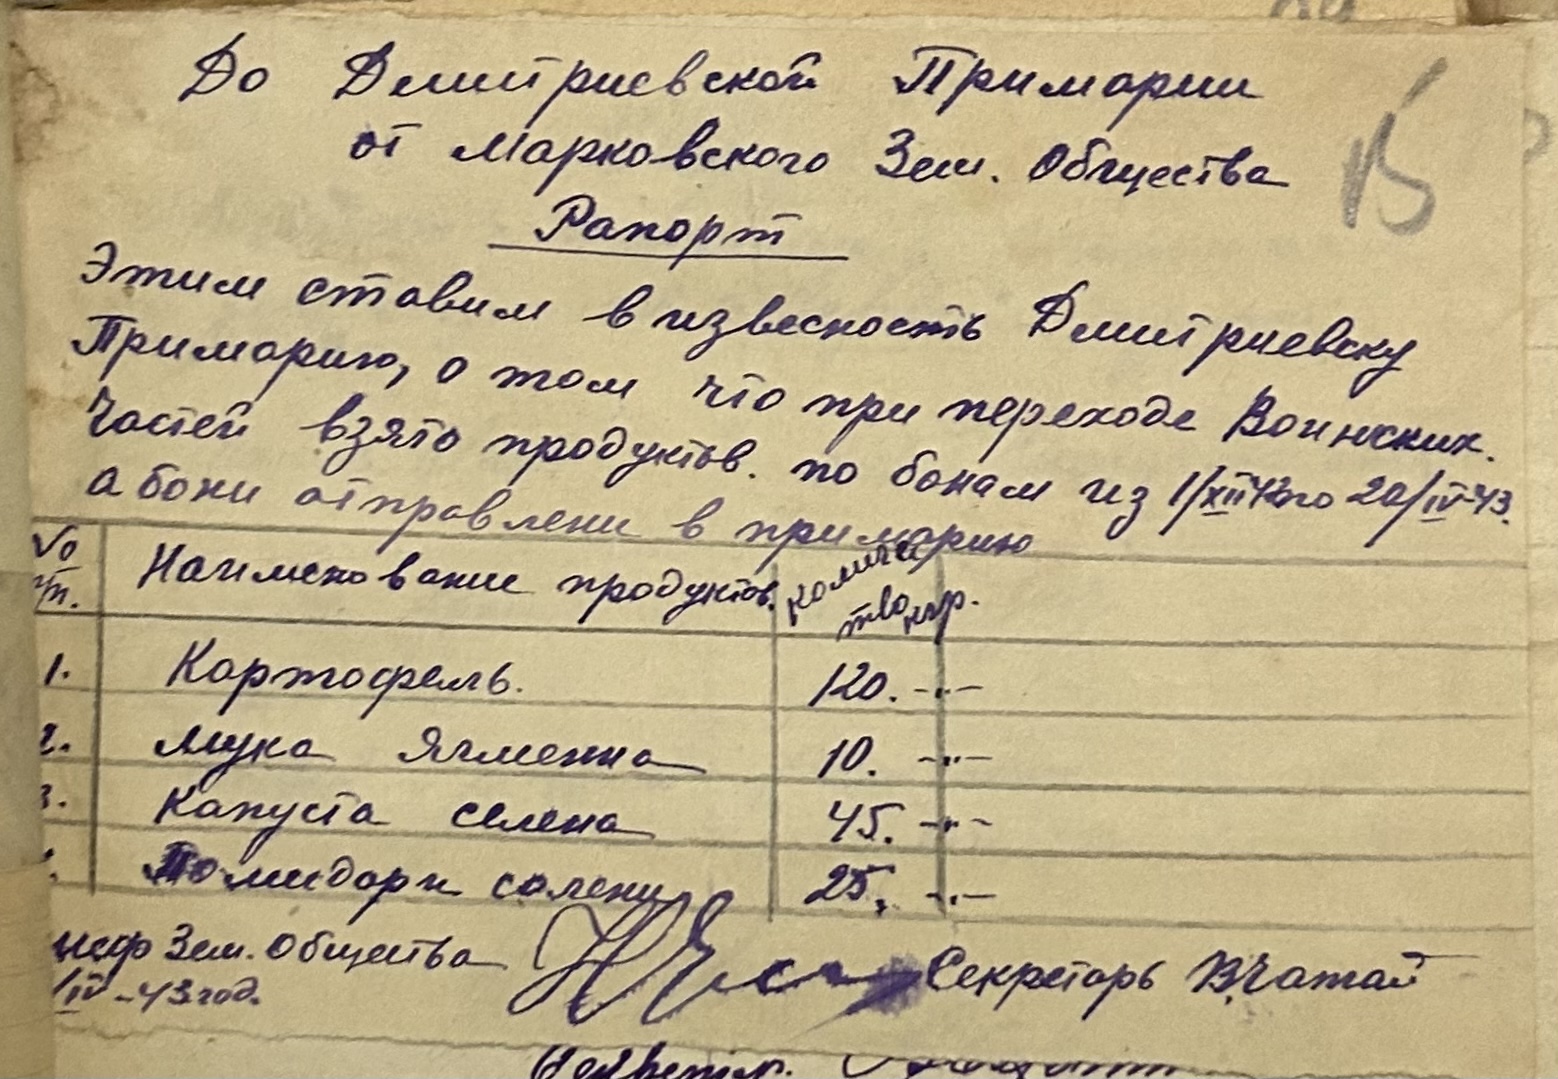 До Дмитриевской Примарии
от Марковского Зем. Общества
В
Рапорт
Этим ставим в извесность Дмитриевску
Примарию, о том что при переходе Воинских.
Частей взято продуктов. по бонам из 1/XII 42 по 20/IV-43.
а бони отправлени в примарию
№ п/п. Наименование продуктов. Количество кгр.
1. Картофель. 120. -"-
2. Мука Ячменна 10. -"-
3. Капуста селена 45. -"-
Помидори солени 25. -"-
шеф Зем. Общества Секретарь В.Чатай
/IV-43 год.